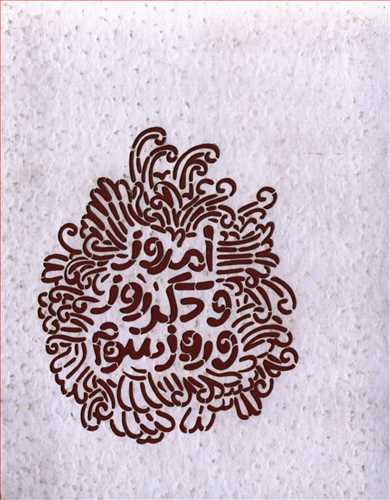 امروز
و دگر روز
و روز سوم